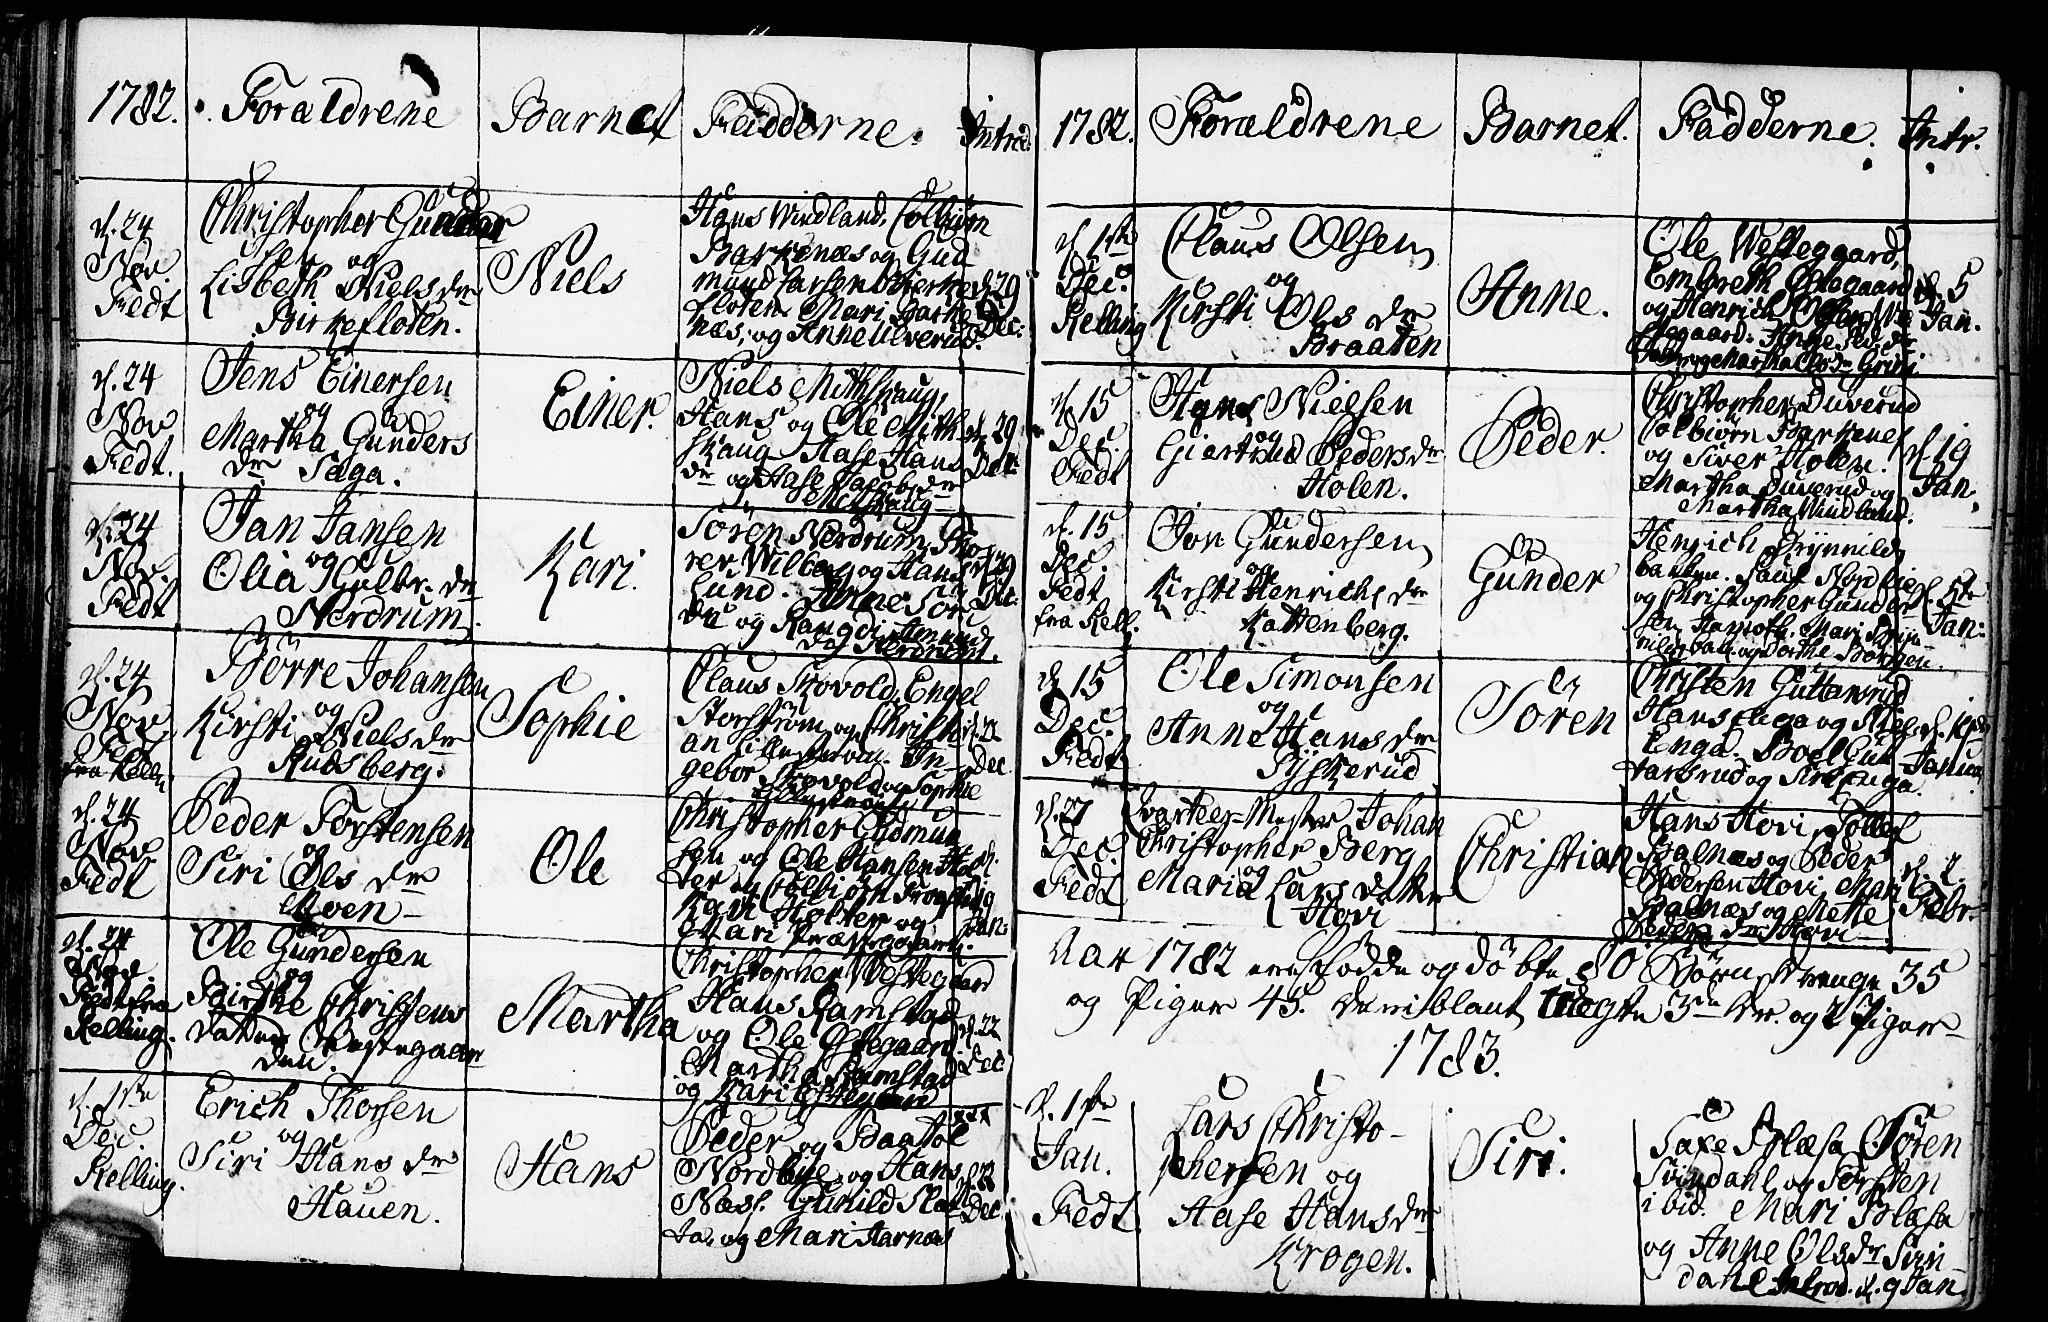 1782. Forældrene Barnet Fadderne. Introd:
d. 24
Nov
Fedt
Christopher Gunder
sen og
Lisbeth Niels dr
Birkefloten.
Niels
Hans Windland, Colbiørn
Barkenæs og Gud
mund Larsen Birke
floten. Mari Barke
næs, og Anne Ulverud.
d. 29
Dec:
d. 24
Nov
Fedt.
Jens Einersen
og
Martha Gunders
dr Sæga.
Einer.
Niels Mithskaug,
Hans og Ole Mith
skaug Aase Hans
dr og Aase Jacobs dr
Mithskaug
d. 29
Dec:
d. 24
Nov.
Fedt
Jan Jansen
og
Olia Gulbr. dr
Nerdrum.
Kari.
Sören Nerdrum,
rer Wilberg og Hans
Lund. Anne
og Rangdi
Nerdrum.
d. 29
Dec:
d. 24
Nov
Fedt
fra Kell.
Börre Johansen
og
Kirsti Niels dr
Rudsberg.
Sophie
Claus Skovold, Engel
Storström og Christi
an Lillestrøm. In
gebor Skovold og Sophie
d. 22
Dec.
d. 24
Nov.
Fedt
Peder Torstensen
og
Siri Ols dr
Moen
Ole
Christopher Gudmun
sen og Ole Hansen Hol
ter og Colbiørn Frogner
Kari Holter og
Mari Præstegaard.
d.
19
Jan:
d. 24
Nov.
Fedt fra
Kelling.
Ole Gundersen
og
Birthe Christens
datter Westegaar
den.
Martha
Christopher Westegaard
Hans Ramstad
og Ole Østegaard
Martha Ramstad
og Kari Østegaard
d. 22
Dec
d. 1ste
Dec.
Kelling.
Erich Thorsen
og
Siri Hans dr
Hauen.
Hans
Peder og Baatol
Nordbye og Hans
Næss. Gunild
og Mari Aarnæs
d. 22
Dec
1782. Forældrene Barnet. Fadderne. Intr.
d. 1ste
Dec.
Kelling
Claus Olsen
og
Kirsti Ols dr
Braaten
Anne.
Ole Westegaard,
Embreth Østegaard
og Henrich Olsen We
stegaard. Anne
og Martha Grini
d. 5
Jan.
d. 15
Dec.
Fedt
Hans Nielsen
og
Giertrud Peders dr
Holen.
Peder.
Christopher Duverud
Colbiörn Barkenes
og Siver Holen.
Martha Duverud og
Martha Windland.
d. 19
Jan.
d. 15
Dec.
Fedt
fra Kell.
Jon Gundersen
og
Kirsti Henrichs dr
Kattenberg.
Gunder
Henrich Brynnilds
bakken. Paul Nordbie
og Christopher Gunder
sen Mari Bryn
nilds bak. og Dorthe Borgen.
d. 5te
Jan:
d. 15
Dec.
Fedt.
Ole Simonsen
og
Anne Hans dr
Syskerud
Sören
Christen Guttersrud
Hans Enga og Niels
Enga. Boel Gut
tersrud og Siri Enga.
d.
Janua
d. 27
Dec.
Fedt
Qvarteer-Mester Johan
Christopher Berg
og
Maria Lars datter
Hovi
Christian
Hans Hovi, Tollef
Balnæs og Peder
Pedersen Hovi, Mari
Balnæs og Mette
Peders dr Hovi
d. 2.
Febr.
Aar 1782 ere födde og döbte 80 Börn, Drenge 35
og Piger 45. deriblant uægte 3de Dr. og 2 Piger
1783.
d. 1ste
Jan.
Fedt.
Lars Christo-
phersen og
Aase Hans dr
Krogen.
Siri.
Saxe Blæsa Sören
Svindahl og Torsten
ibid. Mari Blæsa
og Anne Ols dr Svin
dahl Introd. d. 9 Jan.